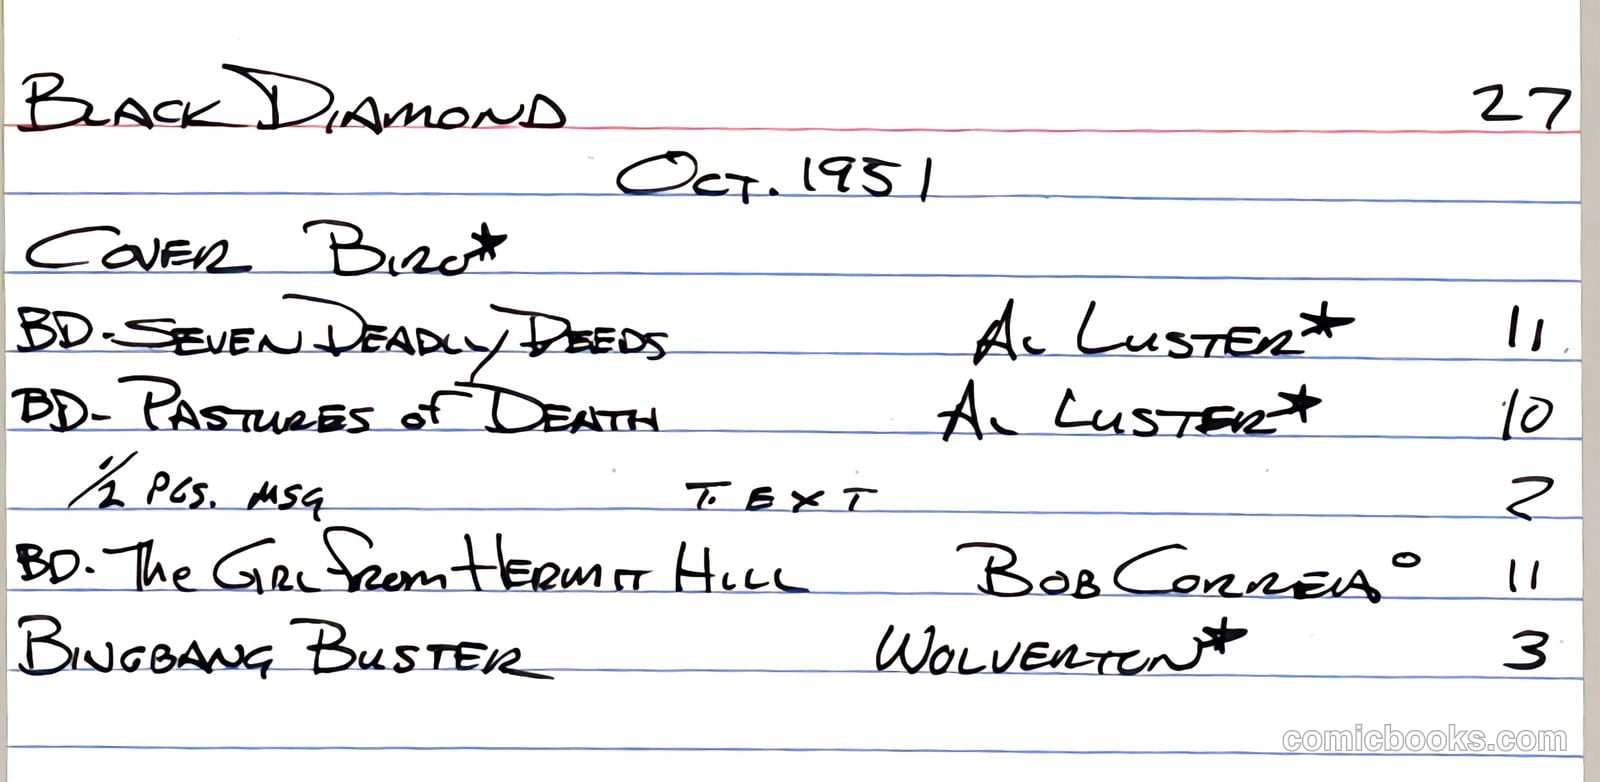 BLACK DIAMOND 27
OCT. 1951
COVER BIRO*
BD-SEVEN DEADLY DEEDS AL LUSTER* 11
BD-PASTURES of DEATH AL LUSTER* 10
1/2 PGS. MSG TEXT 2
BD-The GIRL from HERMIT HILL BOB CORREIA° 11
BINGBANG BUSTER WOLVERTON* 3
comicbooks.com